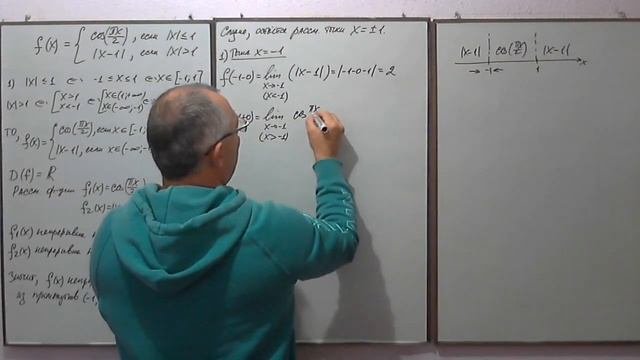 f(x) = { cos(πx/2), если |x| ≤ 1
|x-1|, если |x| > 1
1) |x| ≤ 1 ⇔ -1 ≤ x ≤ 1 ⇔ x ∈ [-1;1]
|x| > 1 ⇔ [ x > 1 ⇔ [ x ∈ (1; +∞)
x < -1 x ∈ (-∞; -1)
То, f(x) = { cos(πx/2), если x ∈ [-1;
|x-1|, если x ∈ (-∞; -1)
D(f) = R
Рассм. функции f₁(x) = cos(πx/2)
f₂(x) = |x
f₁(x) непрерывна
f₂(x) непрерывна
Значит, f(x) непре
из промежутков (-1,
рассм. точки x = ±1.
1) Точка x = -1
f(-1-0) = lim (|x-1|) = |-1-0-1| = 2
x→-1
(x<-1)
+0) = lim cos πx
x→-1
(x>-1)
|x-1| cos(πx/2) |x-1|
→ -1 ← 1 x